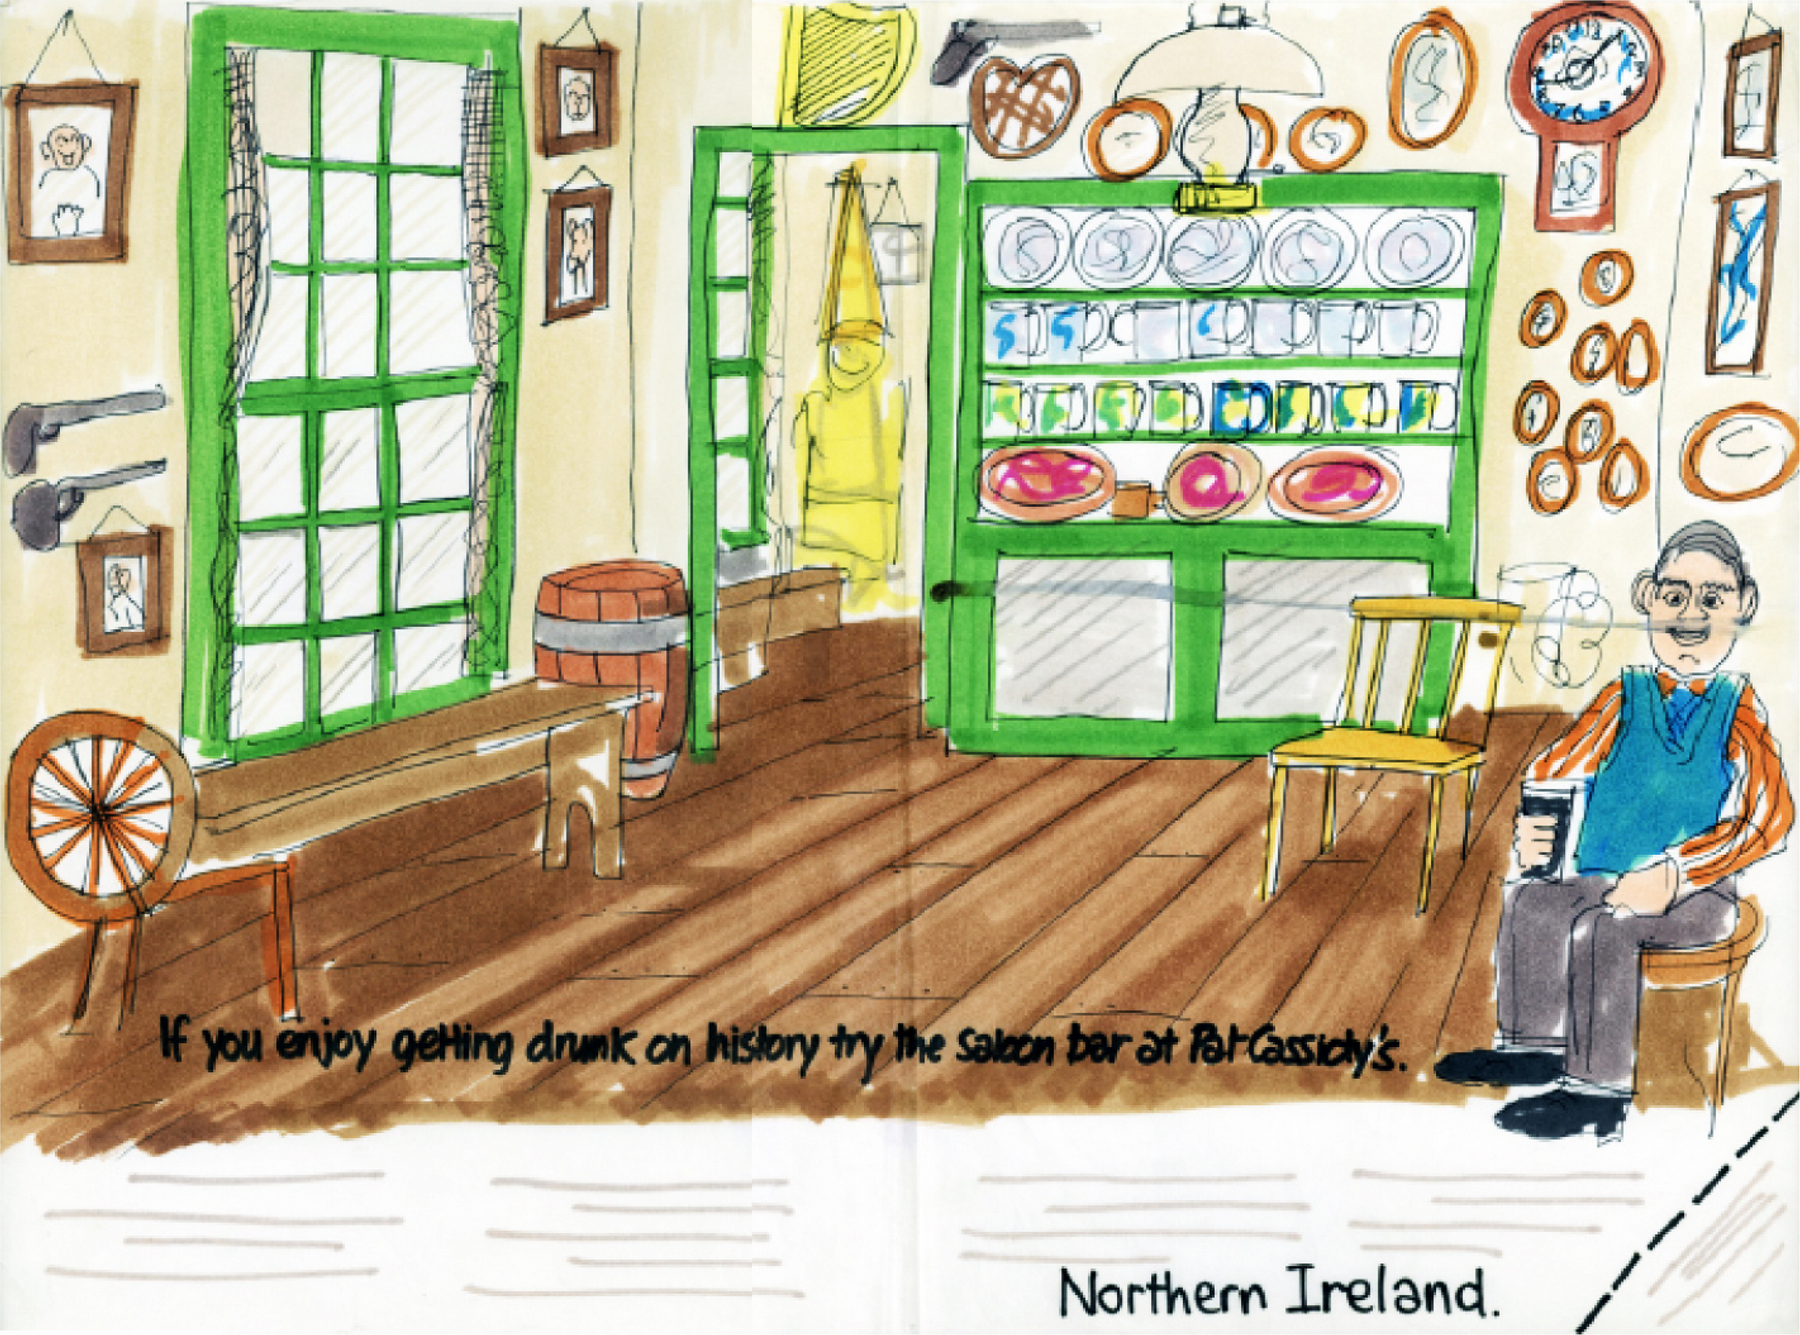 If you enjoy getting drunk on history try the saloon bar at Pat Cassidy's.
Northern Ireland.